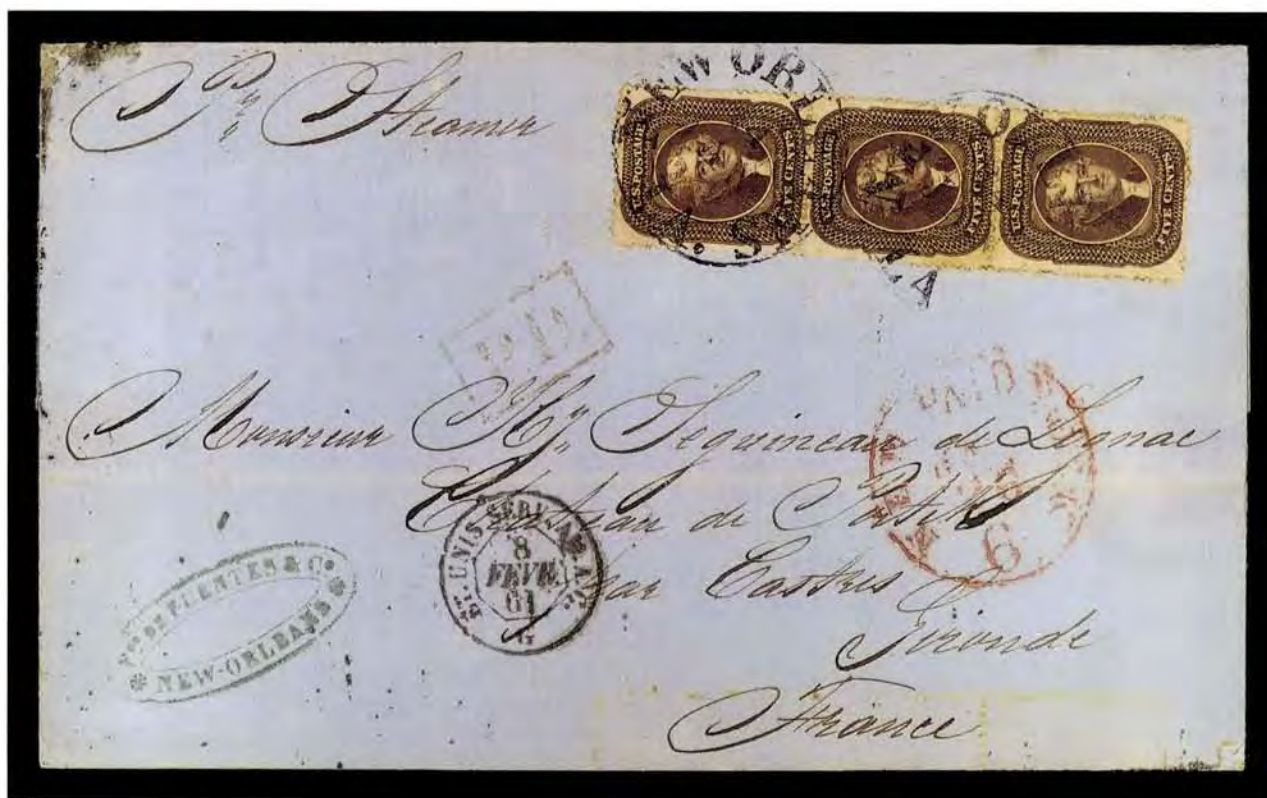 Pr Steamer
NEW ORL
LA
U.S. POSTAGE
FIVE CENTS.
U.S. POSTAGE
FIVE CENTS.
U.S. POSTAGE
FIVE CENTS.
PAID
6
Monsieur Hy Seguineau de Lognac
Chateau de
par Castres
Gironde
France
ET. UNIS SERV. AM. A.C.
8
FEVR.
61
G
DE FUENTES & Co.
NEW-ORLEANS